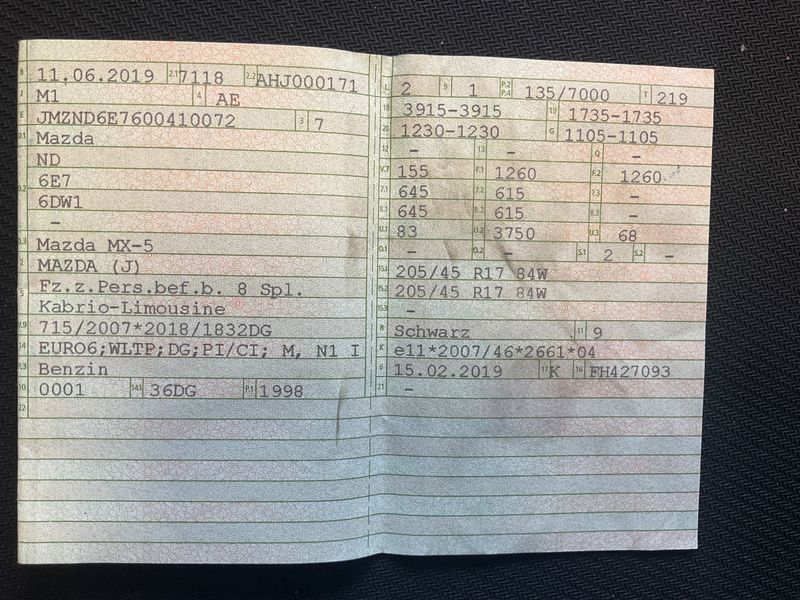 B 11.06.2019 2.1 7118 2.2 AHJ000171
J M1 4 AE
E JMZND6E7600410072 3 7
D.1 Mazda
ND
6E7
D.2 6DW1
-
D.3 Mazda MX-5
2 MAZDA (J)
5 Fz.z.Pers.bef.b. 8 Spl.
Kabrio-Limousine
V.9 715/2007*2018/1832DG
14 EURO6;WLTP;DG;PI/CI; M, N1 I
P.3 Benzin
10 0001 14.1 36DG P.1 1998
22
L 2 9 1 P.2 P.4 135/7000 T 219
18 3915-3915 19 1735-1735
20 1230-1230 G 1105-1105
12 - 13 - Q -
V.7 155 F.1 1260 F.2 1260
7.1 645 7.2 615 7.3 -
8.1 645 8.2 615 8.3 -
U.1 83 U.2 3750 U.3 68
O.1 - O.2 - S.1 2 S.2 -
15.1 205/45 R17 84W
15.2 205/45 R17 84W
15.3 -
R Schwarz 11 9
K e11*2007/46*2661*04
6 15.02.2019 17 K 16 FH427093
21 -